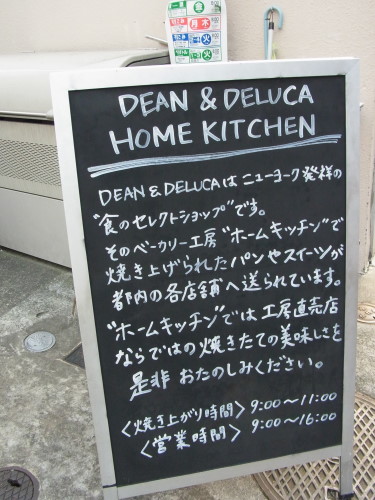 DEAN & DELUCA
HOME KITCHEN
DEAN & DELUCAは ニューヨーク発祥の
"食のセレクトショップ"です。
そのベーカリー工房"ホームキッチン"で
焼き上げられたパンやスイーツが
都内の各店舗へ送られています。
"ホームキッチン"では工房直売店
ならではの焼きたての美味しさを
是非 おたのしみください。
〈焼き上がり時間〉 9:00〜11:00
〈営業時間〉 9:00〜16:00